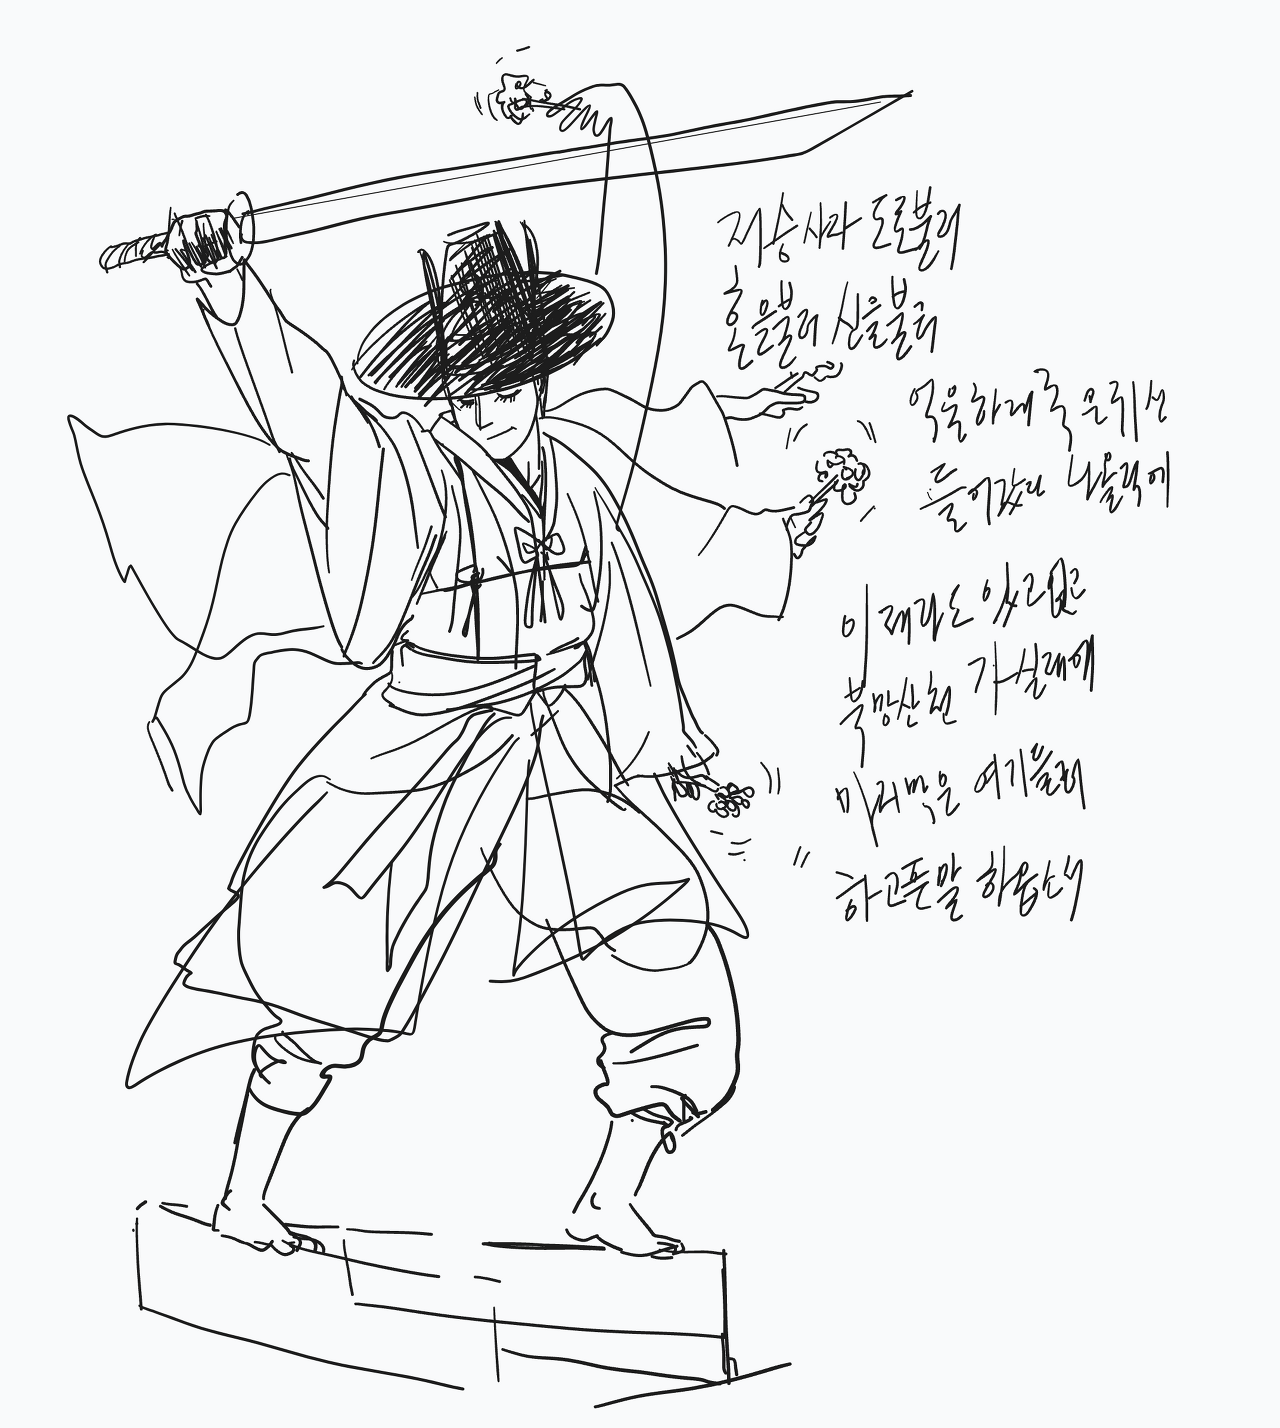 저승사자 도로불러
혼을불러 신을불러
억울하대 죽은귀신
들어갔다 나올적에
이래라도 있고없고
북망산천 가실래에
마리먹은 여기불러
하고픈말 하옵소서